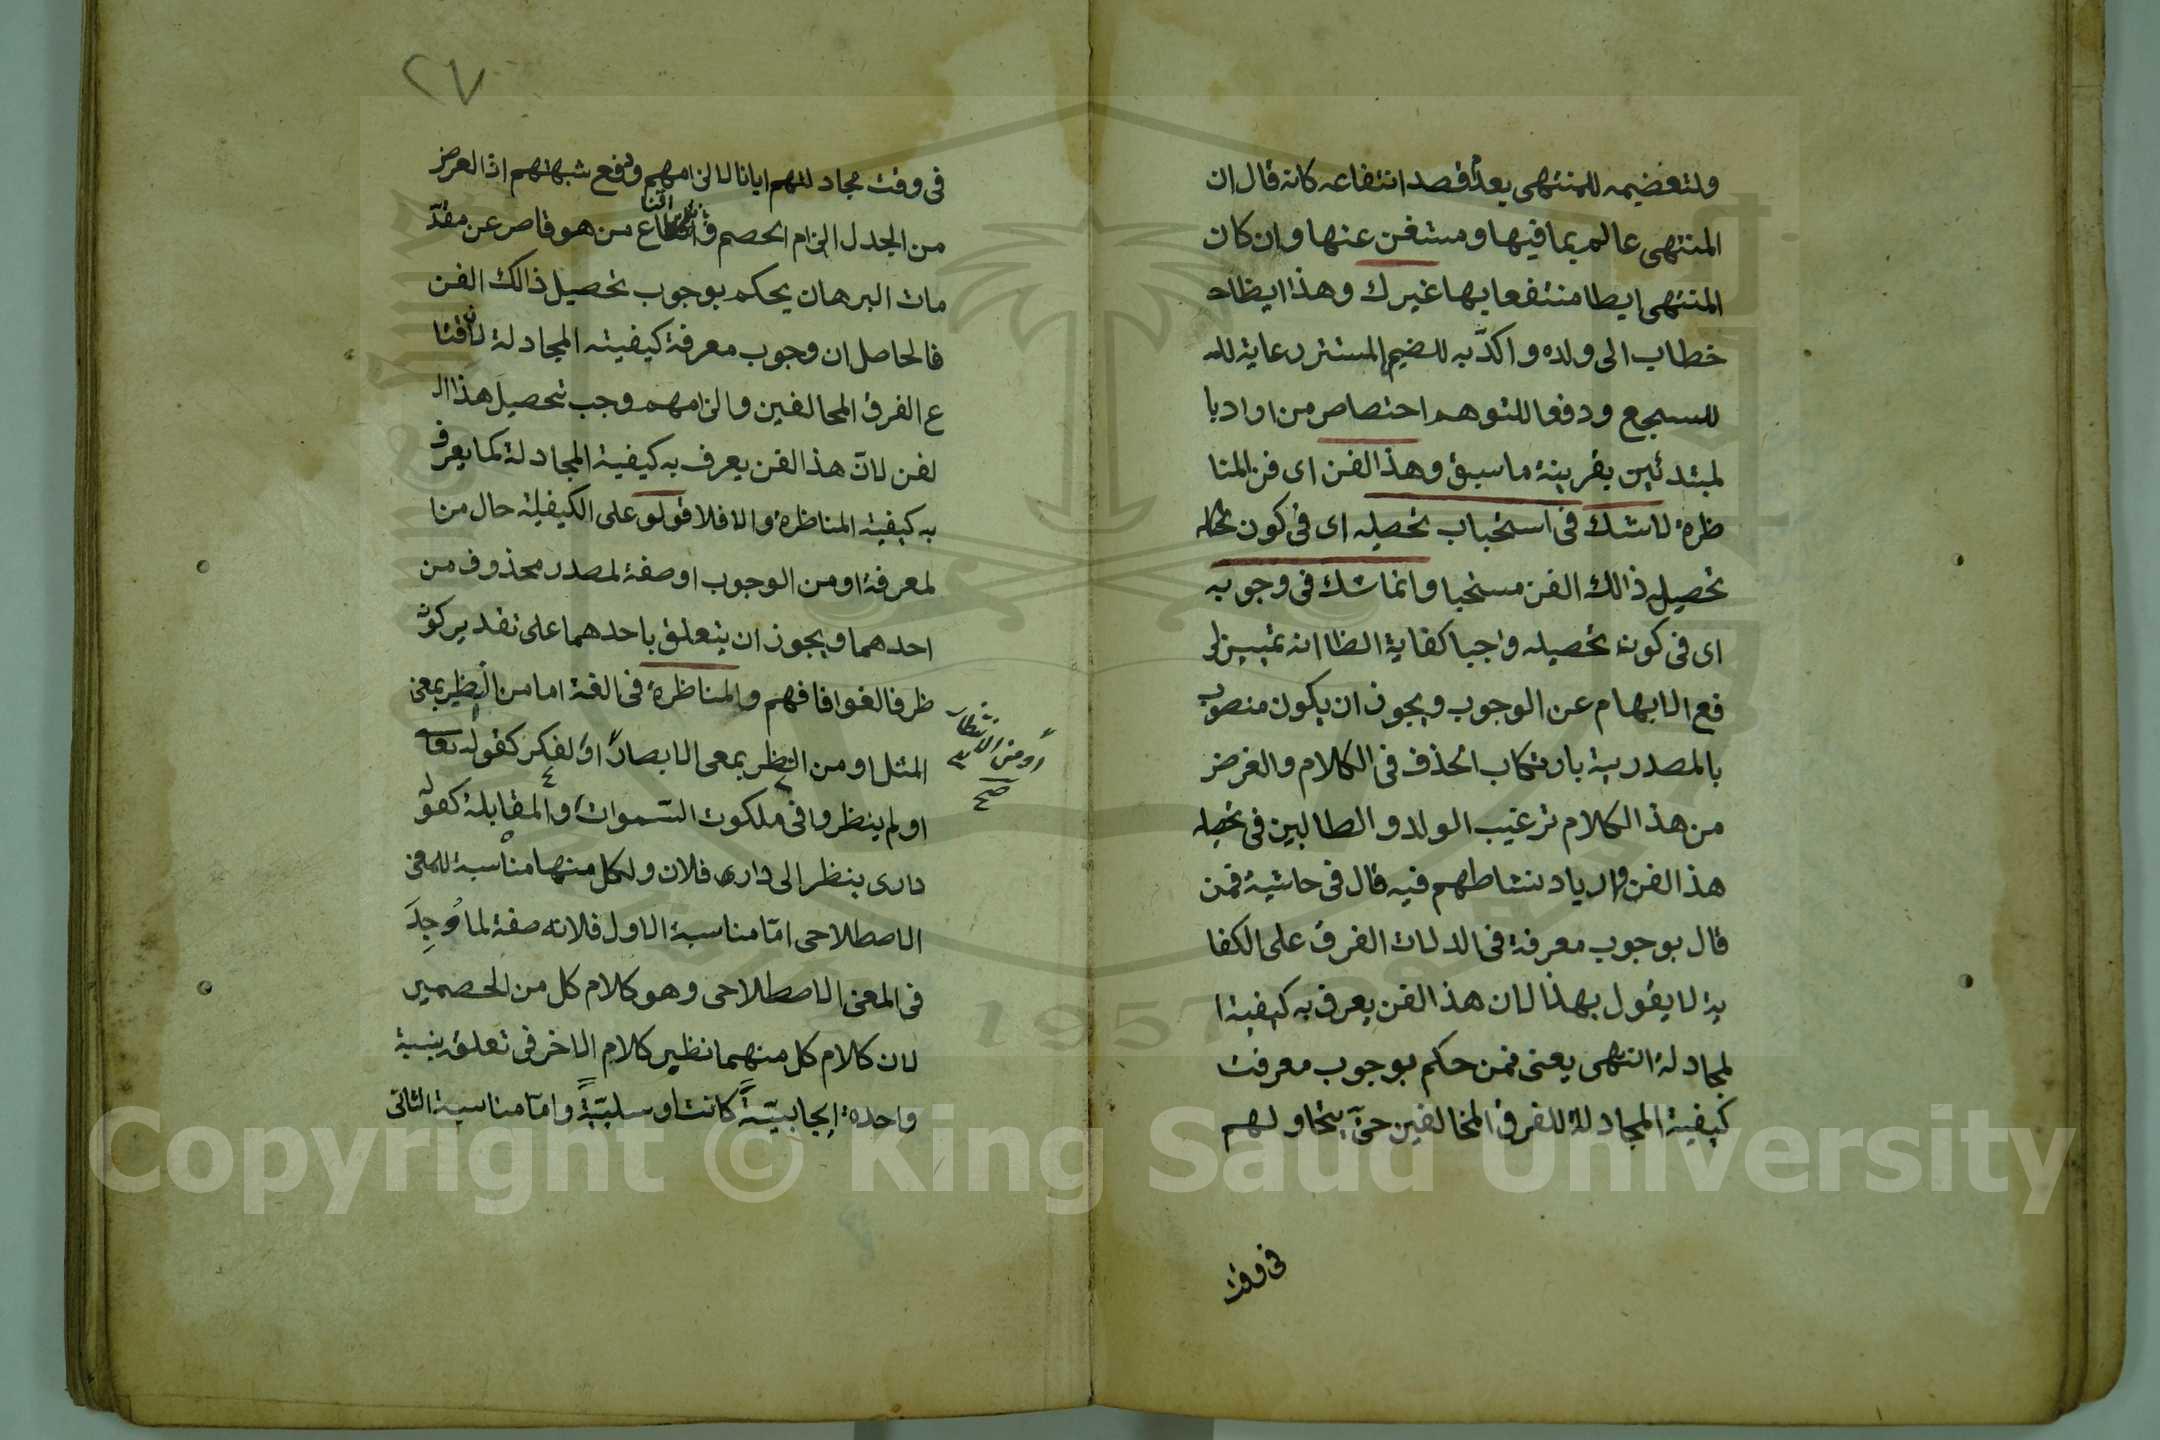 ولتعضيمه للمنتهى بعد قصد انتفاعه كانه قال ان
المنتهى عالم بما فيها ومستغن عنها وان كان
المنتهى ايطا منتفعا بها غيرك وهذا ايظا
خطاب الى ولده واكد به للضمير المستتر رعاية لله
للسجع ودفعا للتوهم احتصاص من اراد با
لمبتدئين بقرينة ما سبق وهذا الفن اى فن المنا
ظرة لا شك فى استحباب تحصيله اى فى كون
تحصيل ذالك الفن مستحبا وانما شك فى وجوبه
اى فى كون تحصيله واجبا كفاية الظا انه تمييز لر
فع الابهام عن الوجوب ويجوز ان يكون منصوب
بالمصدرية بارتكاب الحذف فى الكلام والغرض
من هذا الكلام ترغيب الولد والطالبين فى تحصيل
هذا الفن وازرياد نشاطهم فيه قال فى حاشية فمن
قال بوجوب معرفة فى الدلات الفرق على الكفا
ية لا يقول بهذا لان هذا الفن يعرف به كيفية ا
لمجادلة انتهى يعنى فمن حكم بوجوب معرفت
كيفية المجادلة للفرق المخالفين حتى يتحاولهم
فى وقت
٢٧
فى وقت مجادلتهم ايانا لالزامهم ودفع شبهتهم اذ الغرض
من الجدل الزام الخصم واقناع من هو قاصر عن مقد
مات البرهان يحكم بوجوب تحصيل ذالك الفن
فالحاصل ان وجوب معرفة كيفيته المجادلة
ع الفرق المخالفين والزامهم وجب تحصيل هذا ال
لفن لان هذا الفن يعرف به كيفية المجادلة كما يعرف
به كيفية المناظرة والا فلا قوله على الكيفية حال من ا
لمعرفة او من الوجوب او صفة لمصدر محذوف من
احدهما ويجوز ان يتعلق باحدهما على تقدير كونه
ظرفا لغوا فافهم والمناظرة فى الغة اما من النظير بمعنى
المثل او من النظر بمعى الابصار او الفكر كقوله تعا
او لم ينظروا فى ملكوت السموات او المقابلة كقوله
دارى ينظر الى دار فلان ولكل منها مناسبة للمعنى
الاصطلاحى اما مناسبة الاول فلانه صفة لما وجد
فى المعنى الاصطلاحى وهو كلام كل من الخصمين
لان كلام كل منهما نظير كلام الاخر فى تعلق بنسبة
واحدة ايجابية كانت او سلبية واما مناسبة الثانى
او من الانتظار
صح
Copyright © King Saud University
1957